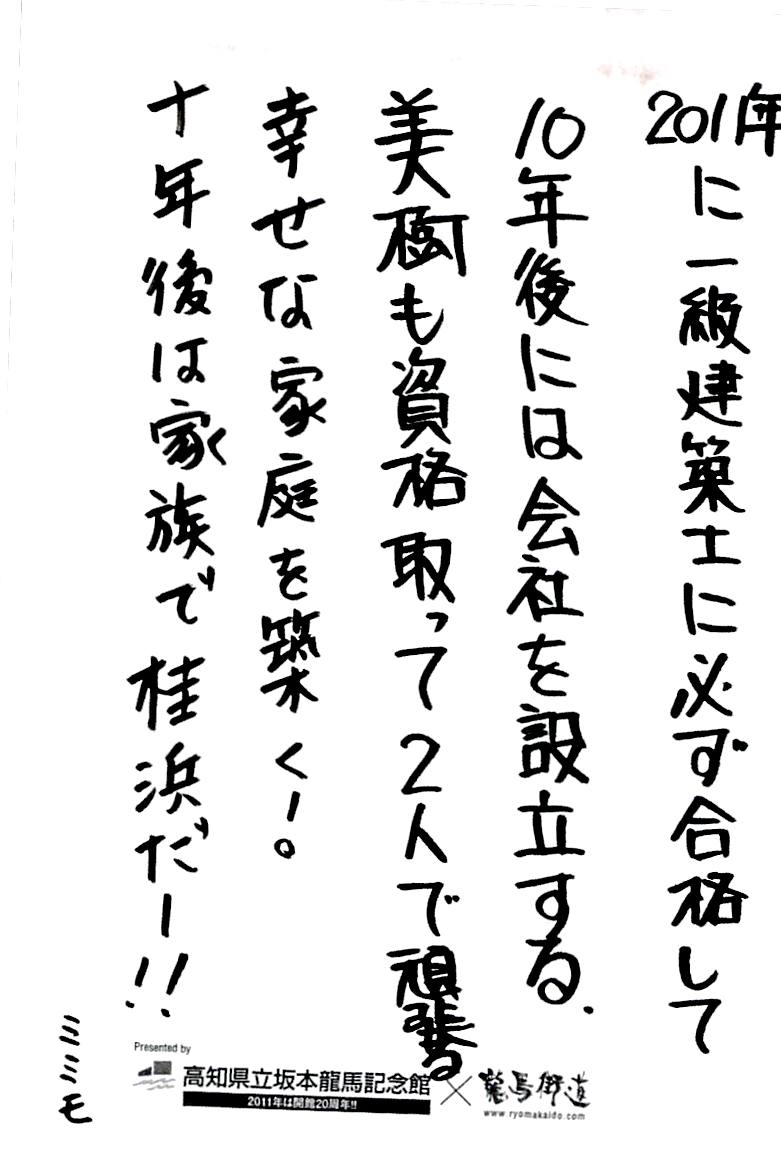 2011年に一級建築士に必ず合格して
10年後には会社を設立する.
美樹も資格取って2人で頑張る
幸せな家庭を築く!。
十年後は家族で桂浜だー!!
ミミモ
Presented by
高知県立坂本龍馬記念館×龍馬街道
2011年は開館20周年!!
www.ryomakaido.com